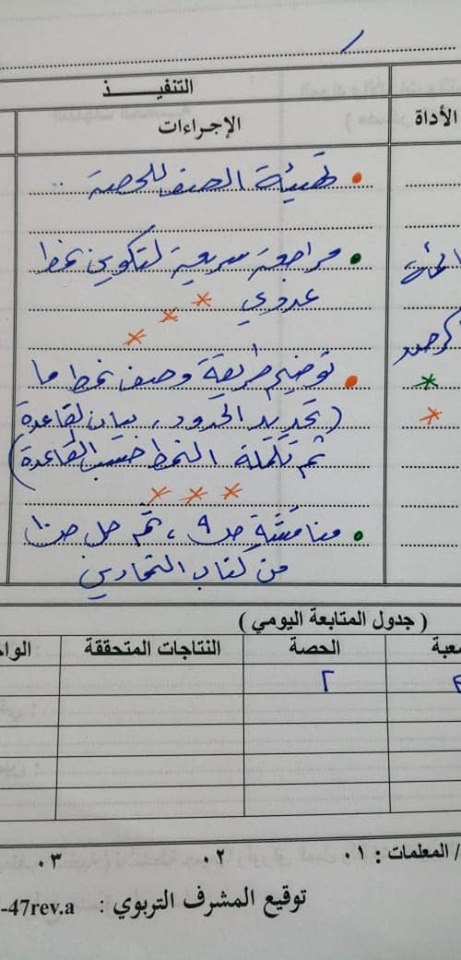 التنفيـــــذ
الأداة
الإجـراءات
• تهيئة الصف للحصة ..
• مراجعة سريعة لتكوين نمط
عددي
• توضيح طريقة وصف نمط ما
(تحديد الحدود، بيان لقاعدة
ثم تكملة النمط حسب القاعدة)
• مناقشة ص٩، ثم حل ص١٠
من كتاب التمارين
( جدول المتابعة اليومي )
الحصة
النتاجات المتحققة
الوا
٢
/ المعلمات : ٠١
٠٢
٠٣
توقيع المشرف التربوي :
-47rev.a